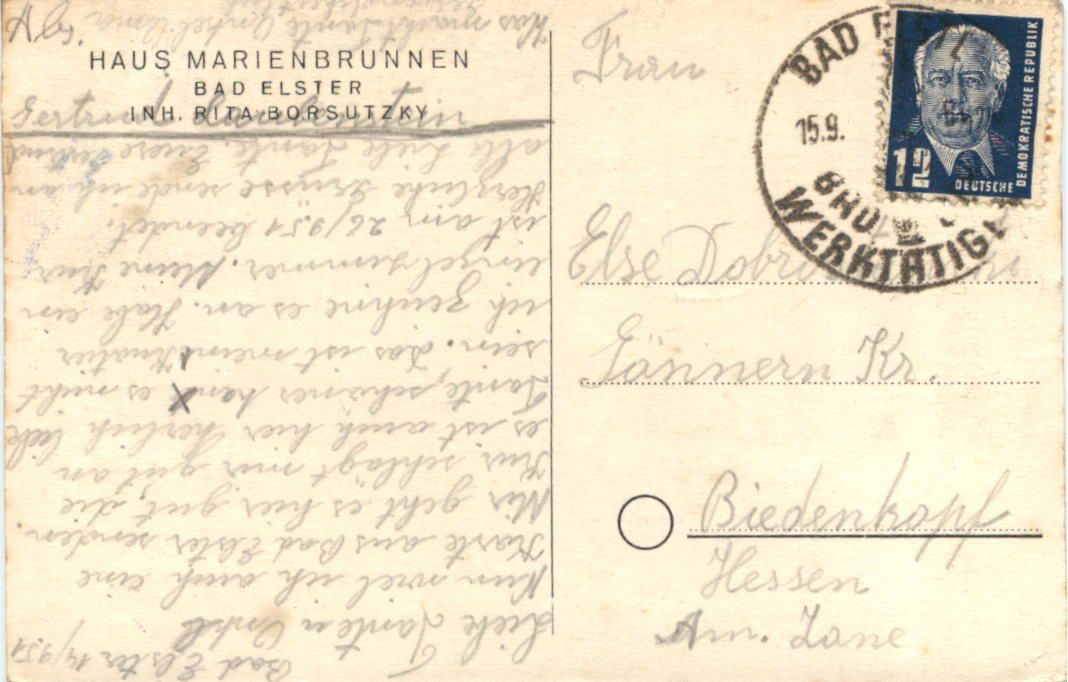 Abs.
HAUS MARIENBRUNNEN
BAD ELSTER
INH. RITA BORSUTZKY
Gertrud
Bad Elster 14/9 51
Liebe Tante u Onkel
Nun will ich auch eine
Karte aus Bad Elster senden.
Mir geht es hier gut, die
Kur schlägt mir gut an
es ist auch hier herlich liebe
Tante, schöner kan es nicht
sein. Das ist mein
ich zeichne es an. Habe ein
einzelzimmer. Meine Kur
ist am 26/9 51 beendet.
Herzliche Grüsse sende ich an
alle Liebe Tante. Eure Gertrud
Was macht Tante Onkel
Frau
Else
Gönnern Kr.
Biedenkopf
Hessen
Am. Zone
BAD
15.9.
WERKTÄTIGE
12
DEUTSCHE
DEMOKRATISCHE REPUBLIK